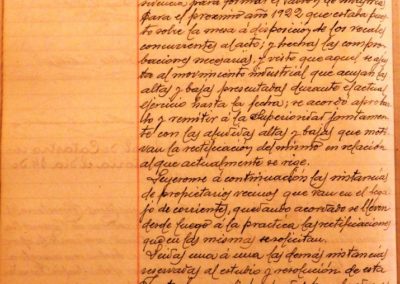 para formar el
para el proximo año 1922 que estaba pues
to sobre la mesa á disposicion de los vocales
concurrentes al acto; y hechas las compro-
baciones necesarias, y visto que aquel se ajus
ta al movimiento industrial que acusan las
altas y bajas presentadas durante el actual
ejercicio hasta la fecha; se acordó aprobar
lo y remitir á la Superioridad juntamen
te con las aludidas altas y bajas que moti-
van la rectificacion del mismo en relacion
al que actualmente se rige.
Leyeronse á continuacion las instancias
de propietarios vecinos que van en el lega
jo de corrientes, quedando acordado se lleven
desde luego á la practica las rectificaciones
que en las mismas se solicitan.
Leidas una á una las demas instancias
reservadas al estudio y resolucion de esta